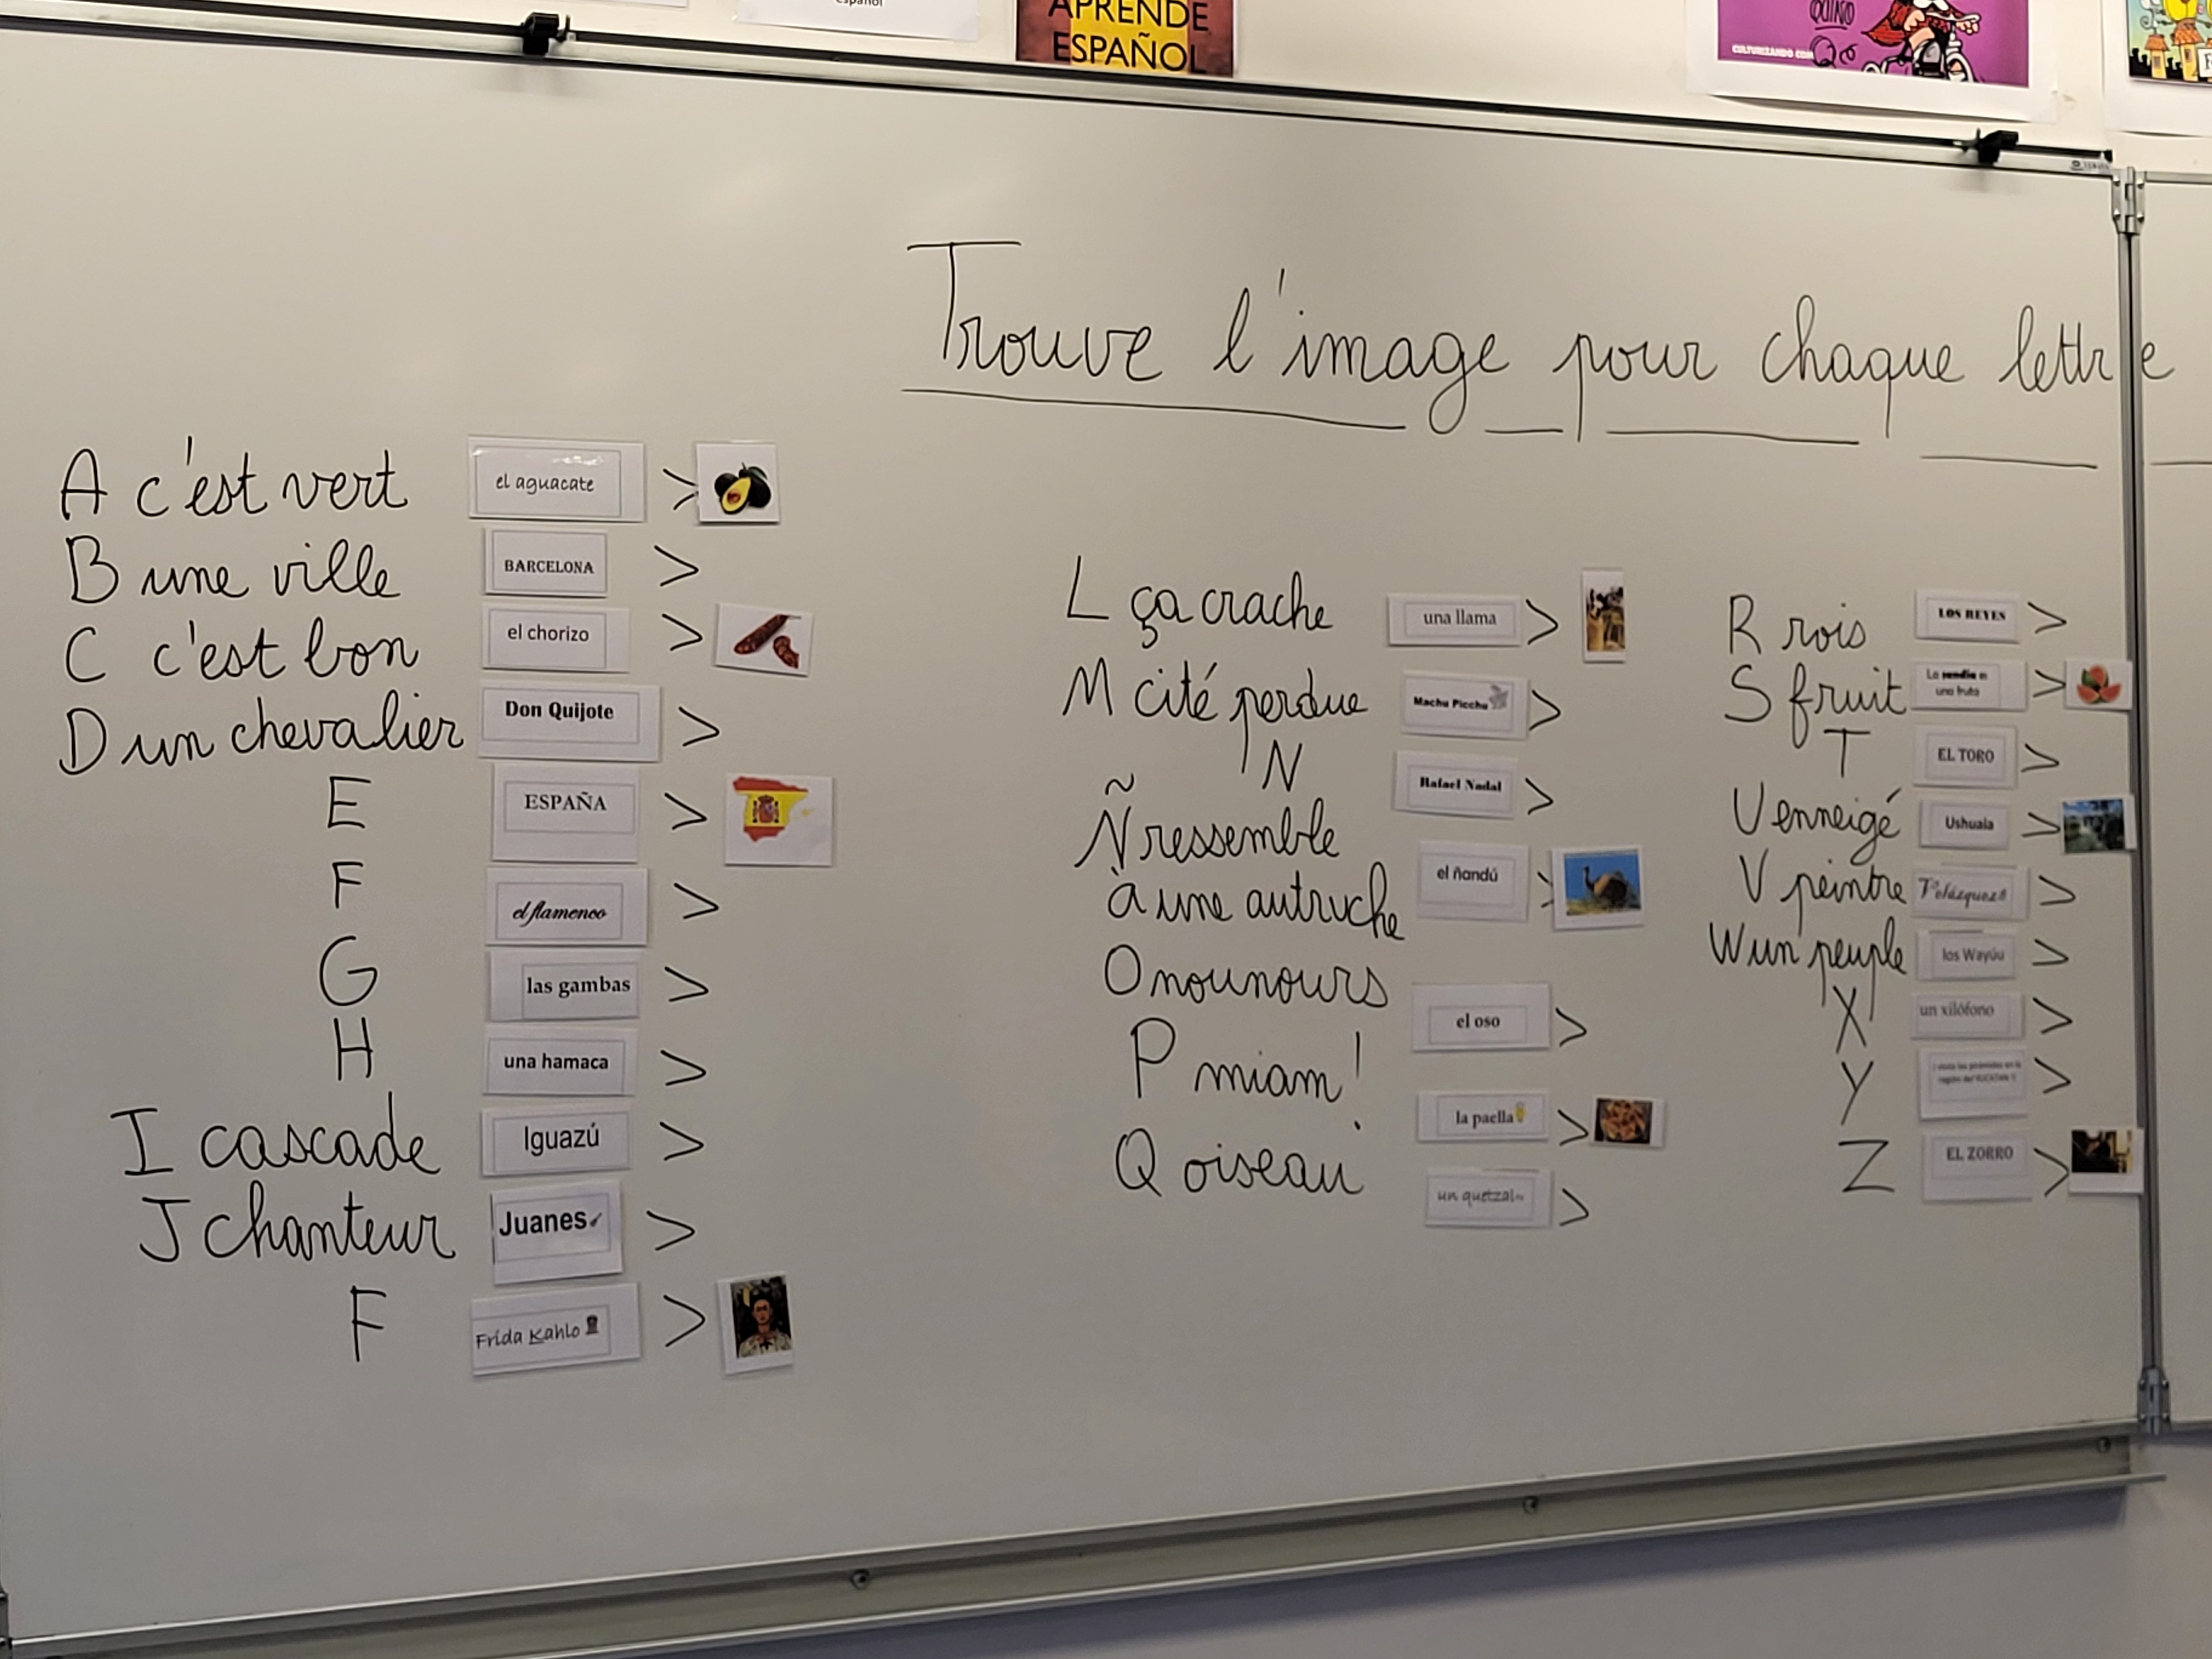 español
APRENDE
ESPAÑOL
QUINO
CULTURIZANDO.COM
Trouve l'image pour chaque lettre
A c'est vert el aguacate >
B une ville BARCELONA >
C c'est bon el chorizo >
D un chevalier Don Quijote >
E ESPAÑA >
F el flamenco >
G las gambas >
H una hamaca >
I cascade Iguazú >
J chanteur Juanes >
F Frida Kahlo >
L ça crache una llama >
M cité perdue Machu Picchu >
N Rafael Nadal >
Ñ ressemble
à une autruche el ñandú >
O nounours el oso >
P miam! la paella >
Q oiseau un quetzal >
R rois LOS REYES >
S fruit La sandía es
una fruta >
T EL TORO >
U enneigé Ushuaia >
V peintre Velázquez >
W un peuple los Wayúu >
X un xilófono >
Y visita las pirámides en la
región del YUCATÁN >
Z EL ZORRO >